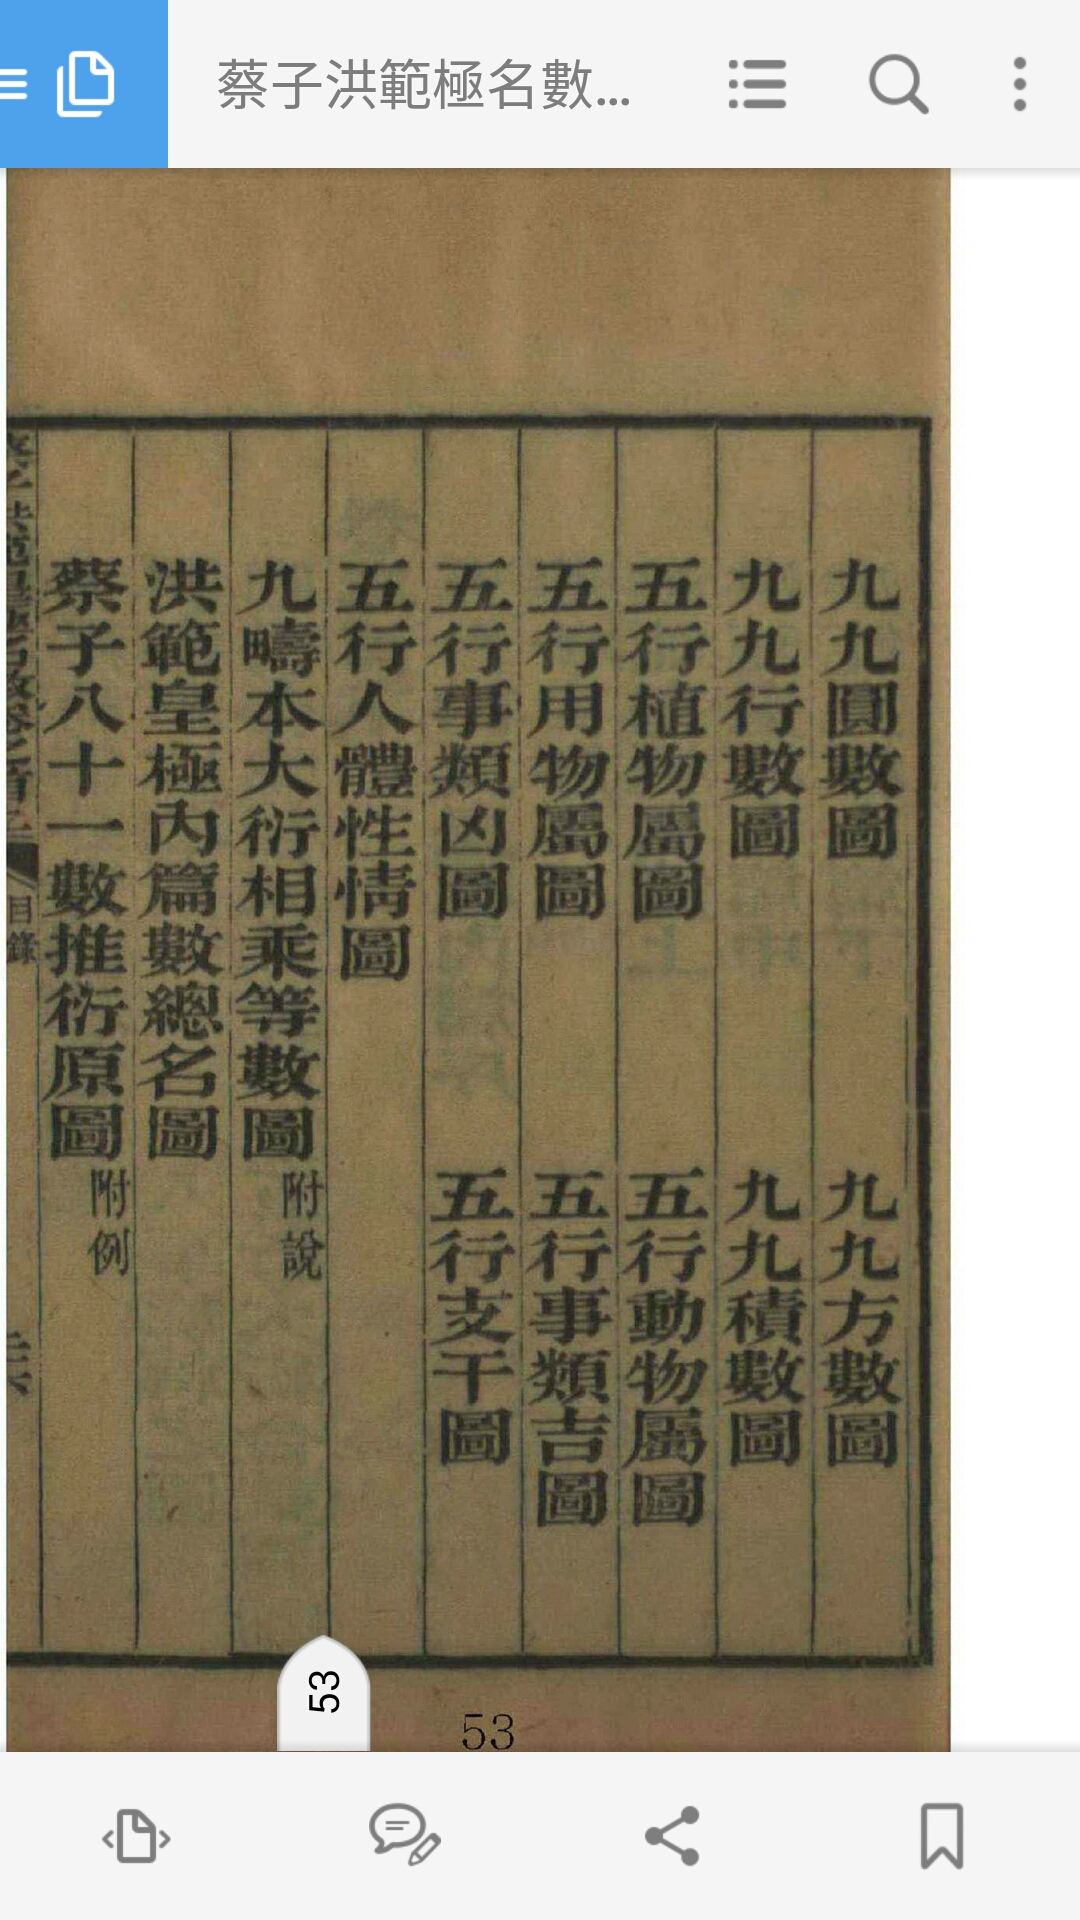 蔡子洪範極名數...
九九圓數圖 九九方數圖
九九行數圖 九九積數圖
五行植物屬圖 五行動物屬圖
五行用物屬圖 五行事類吉圖
五行事類凶圖 五行支干圖
五行人體性情圖
九疇本大衍相乘等數圖 附說
洪範皇極內篇數總名圖
蔡子八十一數推衍原圖 附例
目錄
53
53